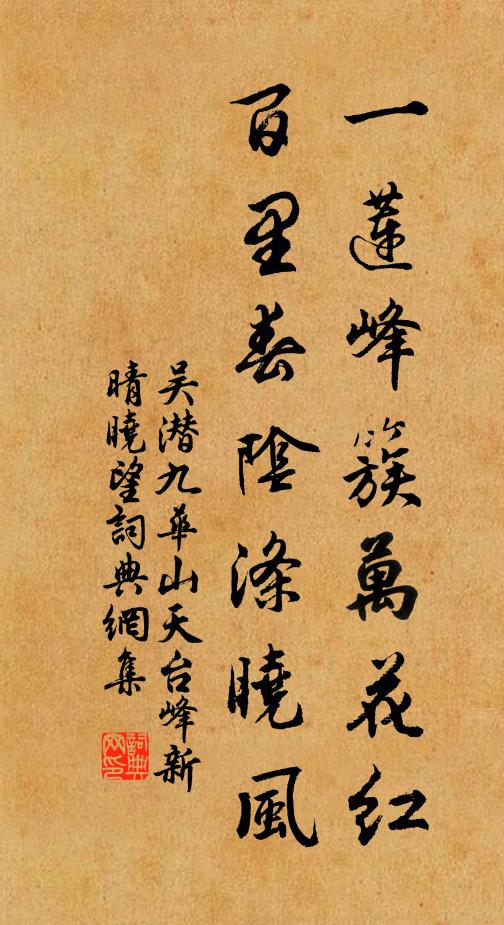 一蓮峰簇萬花紅
百里春陰滌曉風
吴潜九華山天台峰新
晴曉望詞典網集
詞典
网印